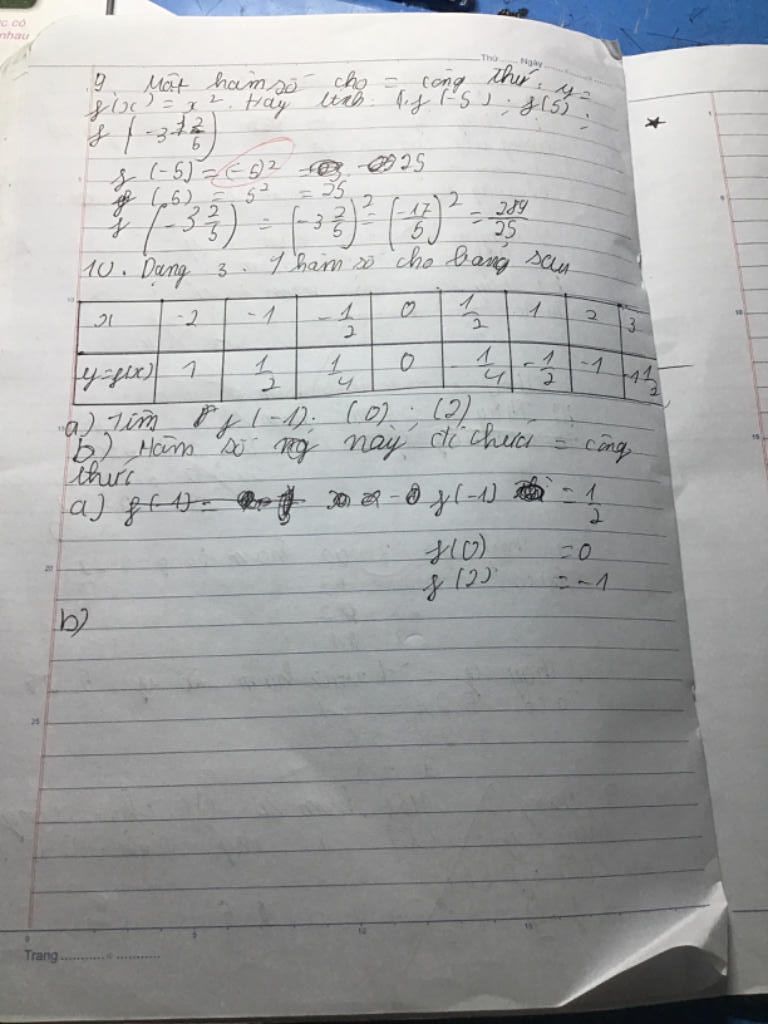 c có
nhau
Thứ ..... Ngày
9 Một hàm số cho = công thức y =
f(x) = x². Hãy tính f(-5) ; f(5) ;
f(-3 2/5)
f(-5) = (-5)² = 25
f(5) = 5² = 25
f(-3 2/5) = (-3 2/5)² = (-17/5)² = 289/25
10. Dạng 3. 1 hàm số cho bảng sau
x -2 -1 -1/2 0 1/2 1 2 3
y=f(x) 1 1/2 1/4 0 -1/4 -1/2 -1 -1 1/2
a) Tìm f(-1); (0); (2)
b) Hàm số này = công
thức
a) f(-1) = f(-1) = 1/2
f(0) = 0
f(2) = -1
b)
Trang